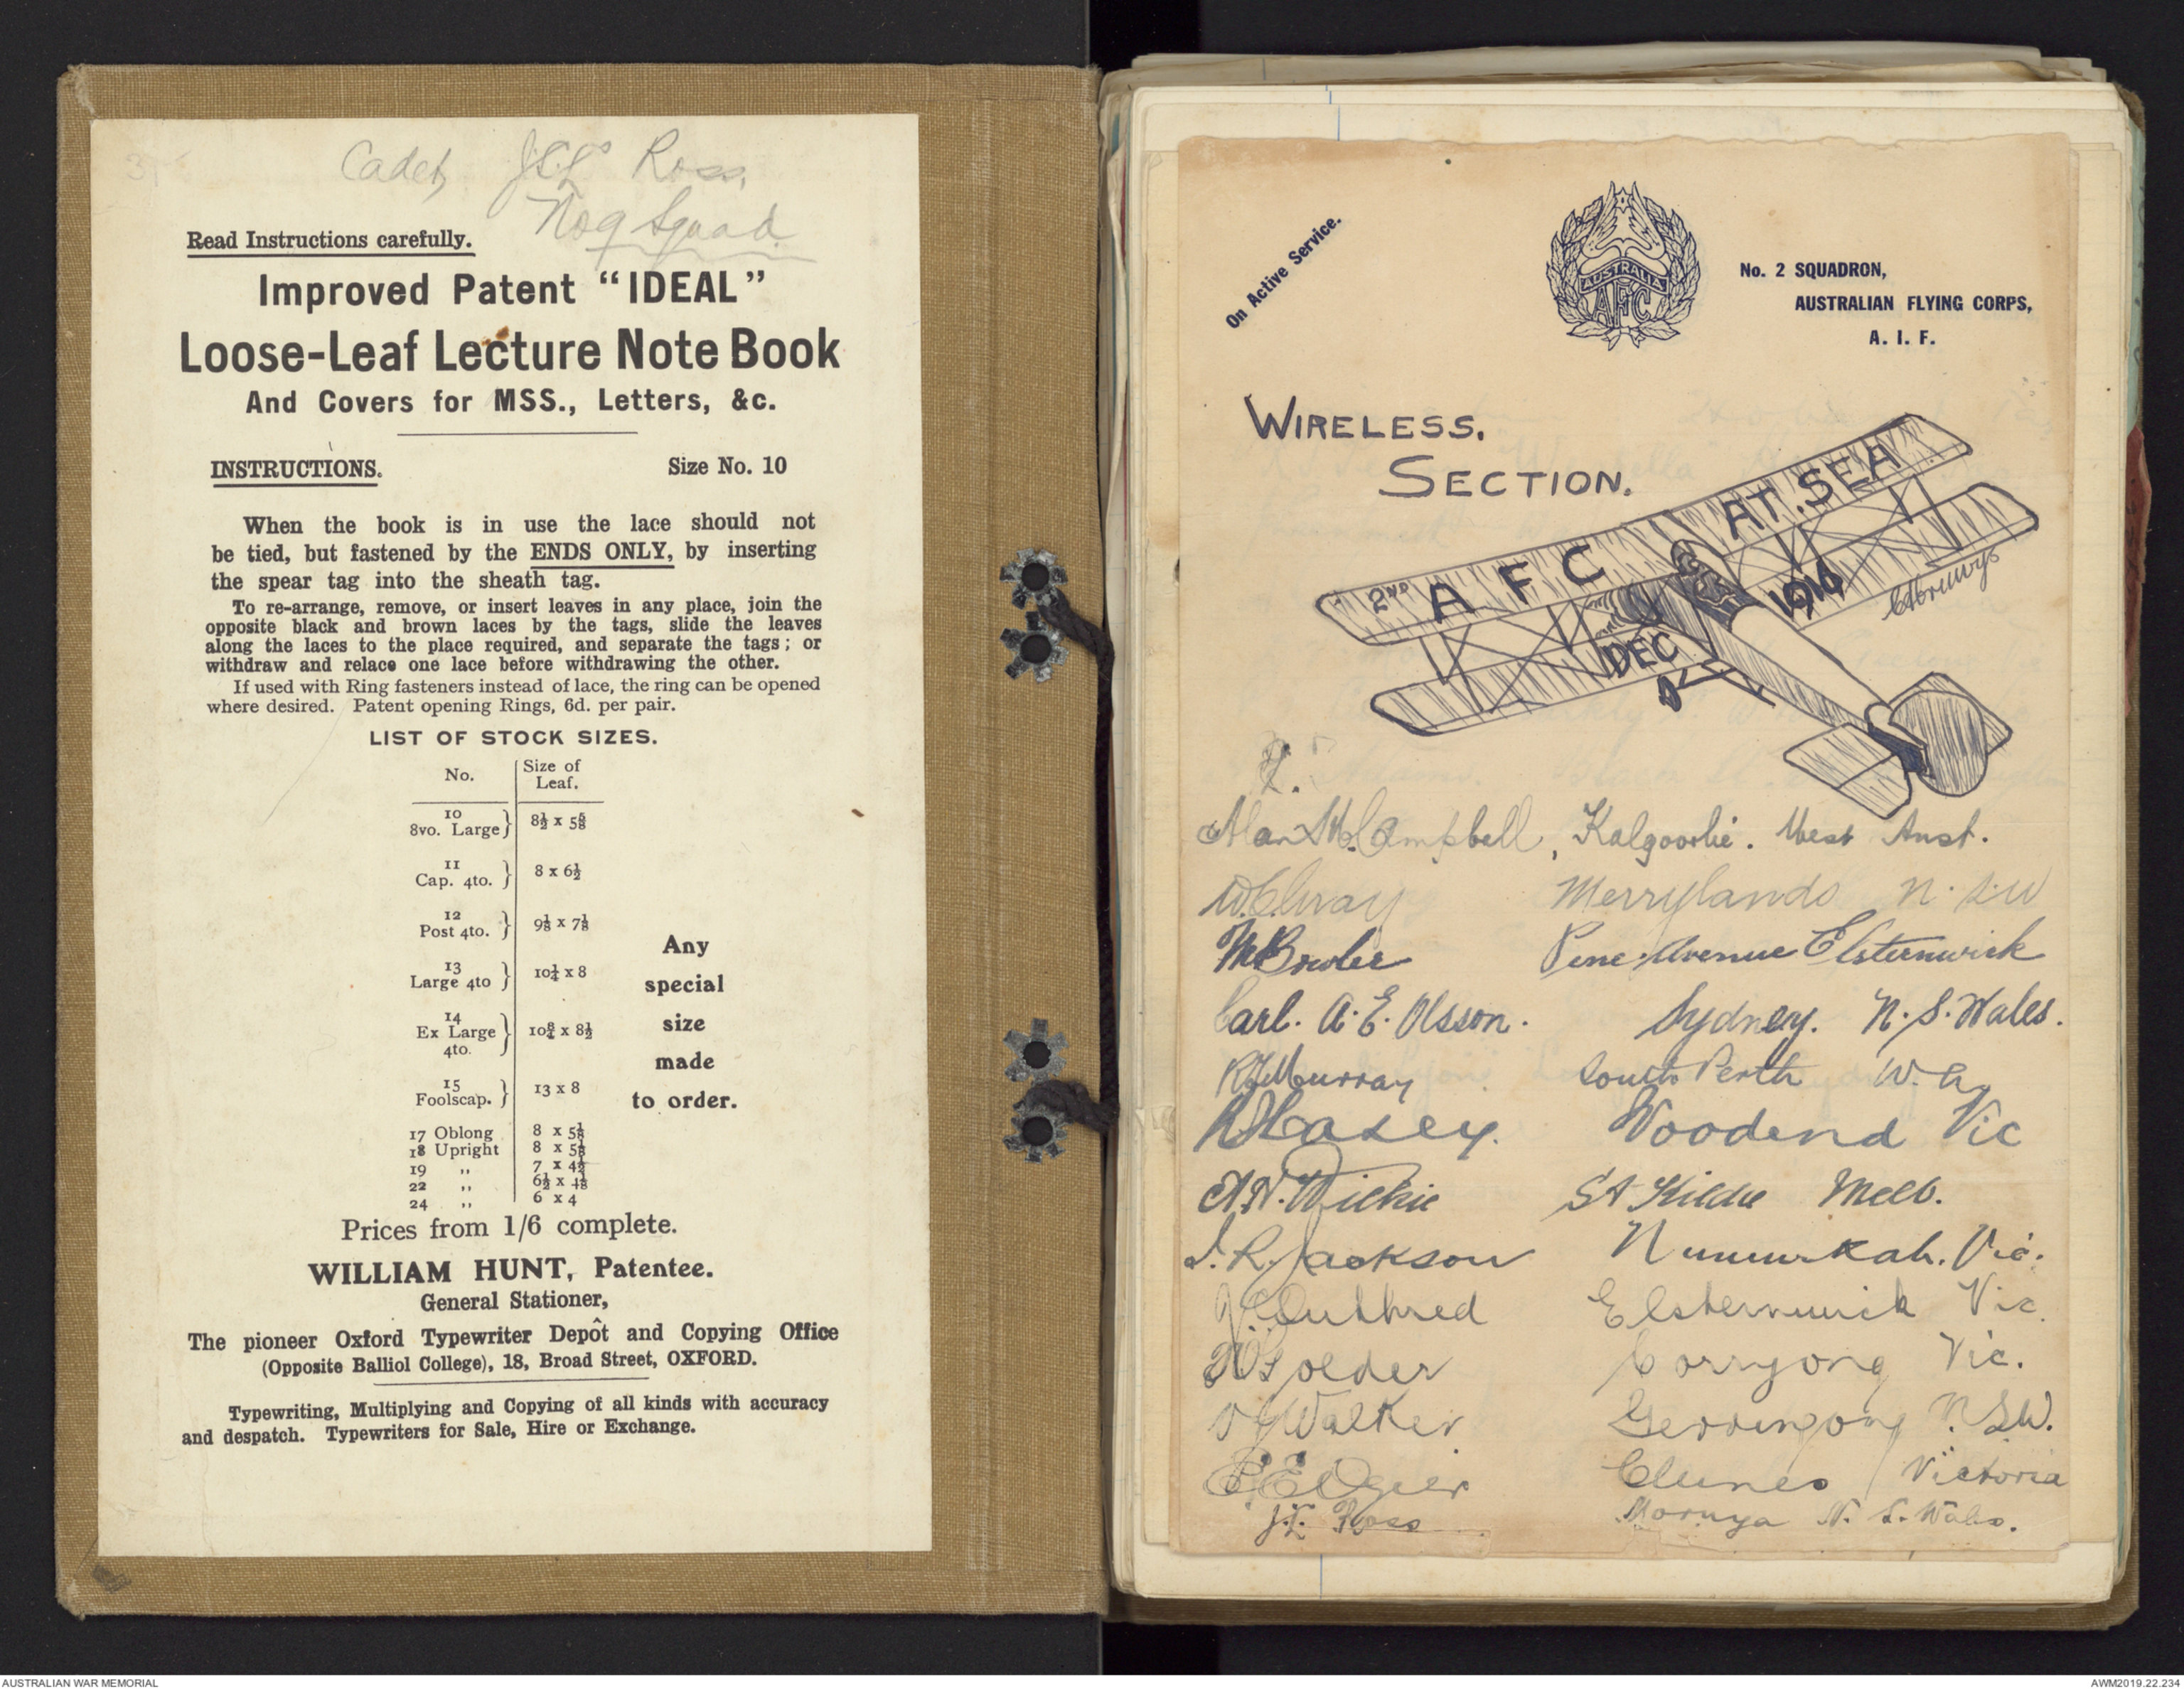 Cadet, J.L. Ross,
No 9 Squad.
Read Instructions carefully.
Improved Patent “IDEAL”
Loose-Leaf Lecture Note Book
And Covers for MSS., Letters, &c.
INSTRUCTIONS. Size No. 10
When the book is in use the lace should not
be tied, but fastened by the ENDS ONLY, by inserting
the spear tag into the sheath tag.
To re-arrange, remove, or insert leaves in any place, join the
opposite black and brown laces by the tags, slide the leaves
along the laces to the place required, and separate the tags; or
withdraw and relace one lace before withdrawing the other.
If used with Ring fasteners instead of lace, the ring can be opened
where desired. Patent opening Rings, 6d. per pair.
LIST OF STOCK SIZES.
No. Size of
Leaf.
10
8vo. Large } 8½ x 5⅝
11
Cap. 4to. } 8 x 6½
12
Post 4to. } 9⅛ x 7⅛
13
Large 4to } 10¼ x 8
14
Ex Large
4to. } x 8½
15
Foolscap. } 13 x 8
17 Oblong 8 x
18 Upright 8 x
19 ,, 7 x
22 ,, 6½ x
24 ,, 6 x 4
Any
special
size
made
to order.
Prices from 1/6 complete.
WILLIAM HUNT, Patentee.
General Stationer,
The pioneer Oxford Typewriter Depôt and Copying Office
(Opposite Balliol College), 18, Broad Street, OXFORD.
Typewriting, Multiplying and Copying of all kinds with accuracy
and despatch. Typewriters for Sale, Hire or Exchange.
On Active Service.
AUSTRALIA
AFC
No. 2 SQUADRON,
AUSTRALIAN FLYING CORPS,
A. I. F.
WIRELESS.
SECTION.
2ND A F C AT. SEA
DEC 1916
Alan Campbell, Kalgoorlie. West Aust.
Merrylands N.S.W
Bowler Pine Avenue Elsternwick
Carl. A. E. Olsson. Sydney. N. S. Wales.
Murray South Perth W.A.
Casey. Woodend Vic
A.N. Wickie St Kilda Melb.
Jackson Numurkah. Vic.
Cuthred Elsternwick Vic.
Golder Corryong Vic.
Walker Gerringong N.S.W.
Ogier Clunes Victoria
J.L. Ross Moruya N. S. Wales.
AUSTRALIAN WAR MEMORIAL
AWM2019.22.234